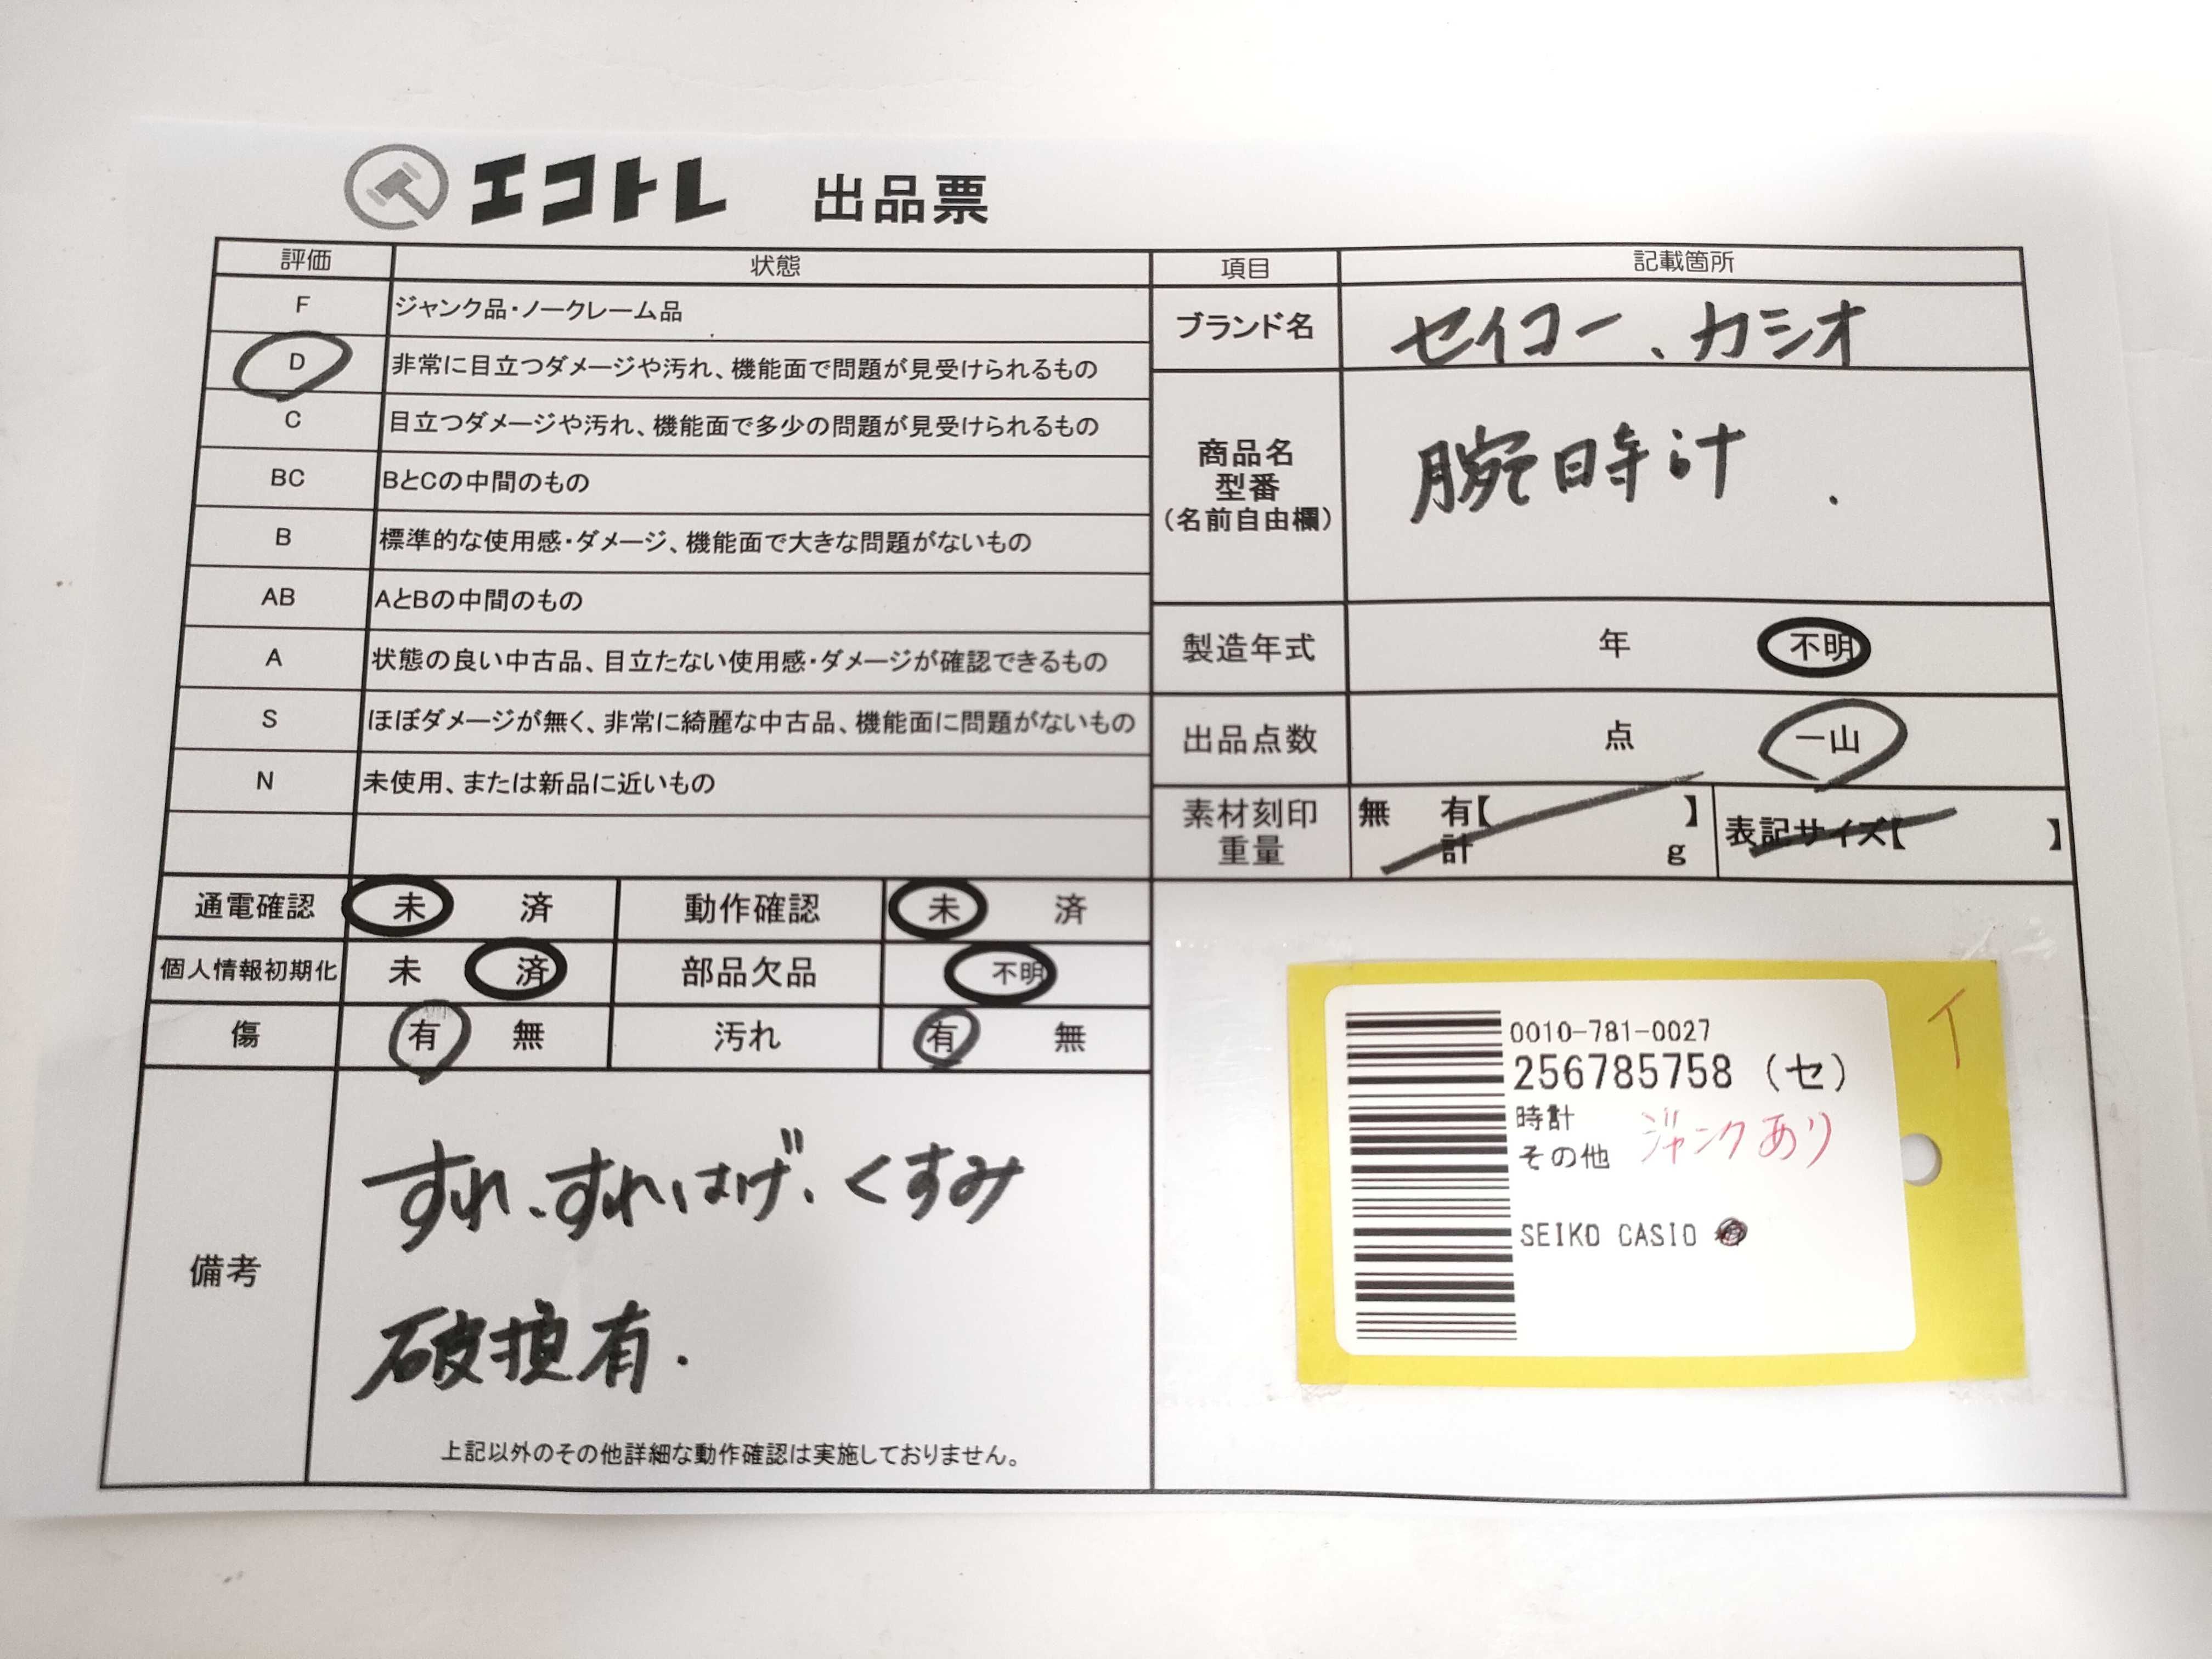 エコトレ 出品票
評価 状態
F ジャンク品・ノークレーム品
D 非常に目立つダメージや汚れ、機能面で問題が見受けられるもの
C 目立つダメージや汚れ、機能面で多少の問題が見受けられるもの
BC BとCの中間のもの
B 標準的な使用感・ダメージ、機能面で大きな問題がないもの
AB AとBの中間のもの
A 状態の良い中古品、目立たない使用感・ダメージが確認できるもの
S ほぼダメージが無く、非常に綺麗な中古品、機能面に問題がないもの
N 未使用、または新品に近いもの
通電確認 未 済 動作確認 未 済
個人情報初期化 未 済 部品欠品 不明
傷 有 無 汚れ 有 無
備考
すれ、すれはげ、くすみ
破損有.
上記以外のその他詳細な動作確認は実施しておりません。
項目 記載箇所
ブランド名 セイコー、カシオ
商品名
型番
(名前自由欄)
腕時計.
製造年式 年 不明
出品点数 点 一山
素材刻印 無 有【 】
重量 計 g
表記サイズ【 】
イ
0010-781-0027
256785758 (セ)
時計
その他 ジャンクあり
SEIKO CASIO